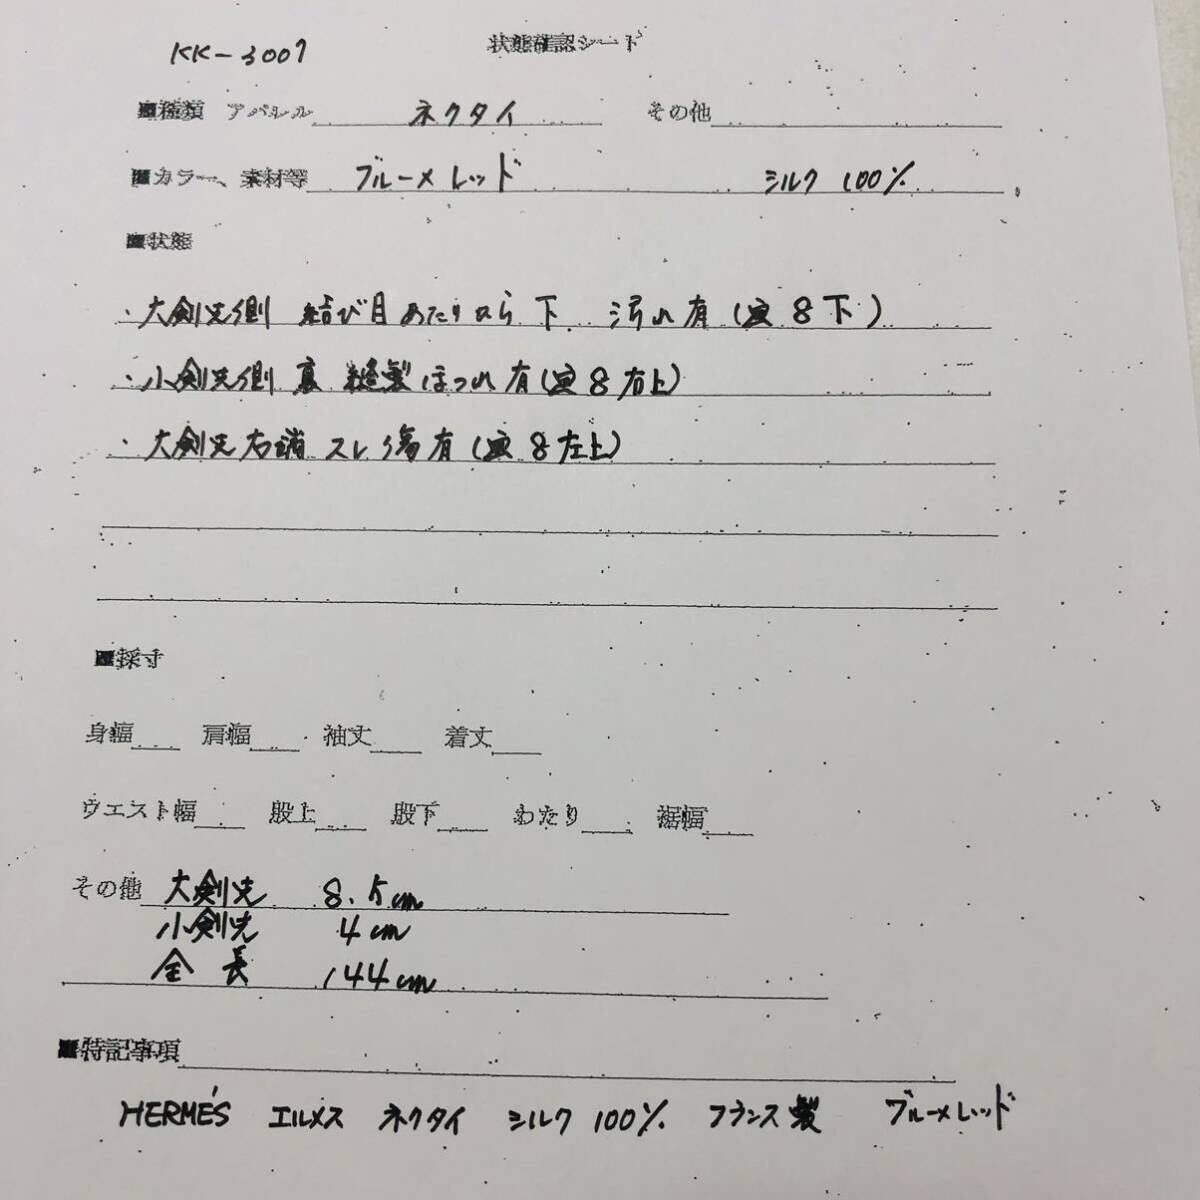 KK-3007
状態確認シート
■種類 アパレル ネクタイ その他
■カラー、素材等 ブルー×レッド シルク 100%
■状態
・大剣先側 結び目あたりから下 汚れ有(画8下)
・小剣先側 裏 縫製ほつれ有(画8右上)
・大剣先右端 スレ傷有(画8左上)
■採寸
身幅 肩幅 袖丈 着丈
ウエスト幅 股上 股下 わたり 裾幅
その他 大剣先 8.5cm
小剣先 4cm
全長 144cm
■特記事項
HERMÉS エルメス ネクタイ シルク 100% フランス製 ブルー×レッド